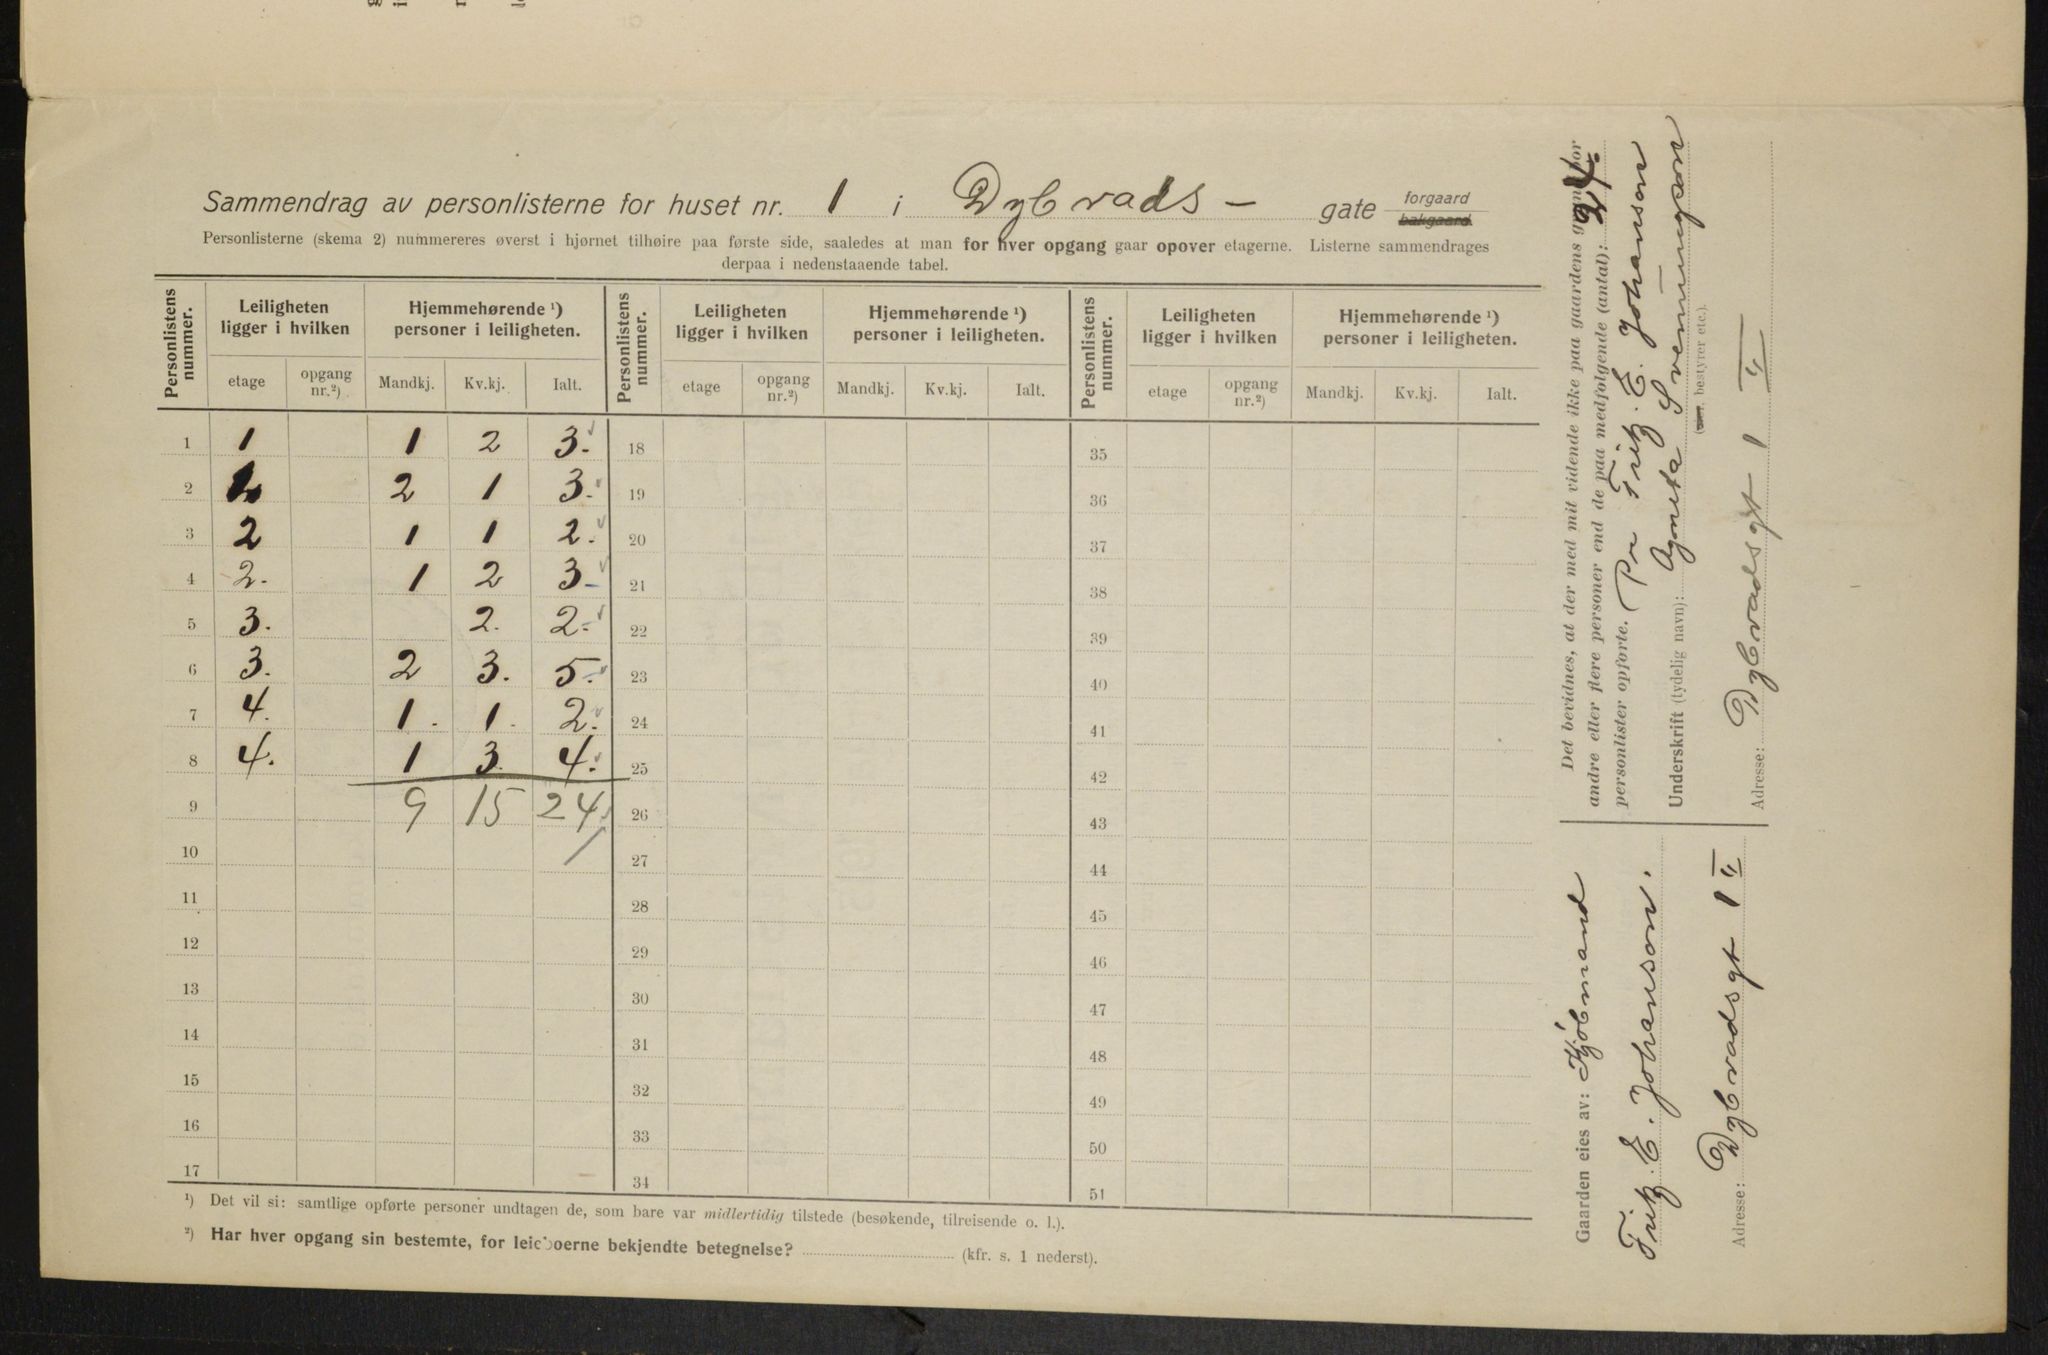 Sammendrag av personlisterne for huset nr. 1 i Dybvads - gate forgaard bakgaard
Personlisterne (skema 2) nummereres øverst i hjørnet tilhøire paa første side, saaledes at man for hver opgang gaar opover etagerne. Listerne sammendrages
derpaa i nedenstaaende tabel.
Personlistens nummer. Leiligheten ligger i hvilken Hjemmehørende ¹) personer i leiligheten. Personlistens nummer. Leiligheten ligger i hvilken Hjemmehørende ¹) personer i leiligheten. Personlistens nummer. Leiligheten ligger i hvilken Hjemmehørende ¹) personer i leiligheten.
etage opgang nr.²) Mandkj. Kv.kj. Ialt. etage opgang nr.²) Mandkj. Kv.kj. Ialt. etage opgang nr.²) Mandkj. Kv.kj. Ialt.
1 1 1 2 3. 18 35
2 2 1 3. 19 36
3 2 1 1 2. 20 37
4 2. 1 2 3. 21 38
5 3. 2. 2. 22 39
6 3. 2 3. 5. 23 40
7 4. 1. 1. 2. 24 41
8 4. 1 3. 4. 25 42
9 9 15 24 26 43
10 27 44
11 28 45
12 29 46
13 30 47
14 31 48
15 32 49
16 33 50
17 34 51
¹) Det vil si: samtlige opførte personer undtagen de, som bare var midlertidig tilstede (besøkende, tilreisende o. l.).
²) Har hver opgang sin bestemte, for leieboerne bekjendte betegnelse? (kfr. s. 1 nederst).
Det bevidnes, at der med mit vidende ikke paa gaardens grund bor
andre eller flere personer end de paa medfølgende (antal): 24.
personlister opførte. Pr Fritz. E. Johanson
Underskrift (tydelig navn): Agneta Svenningson
(eier, bestyrer etc.).
Adresse: Dybvadsgt 1 IV
Gaarden eies av: Kjøbmand
Fritz. E. Johanson.
Adresse: Dybvadsgt 1 IV